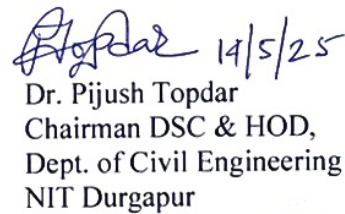 PTopdar 14/5/25
Dr. Pijush Topdar
Chairman DSC & HOD,
Dept. of Civil Engineering
NIT Durgapur